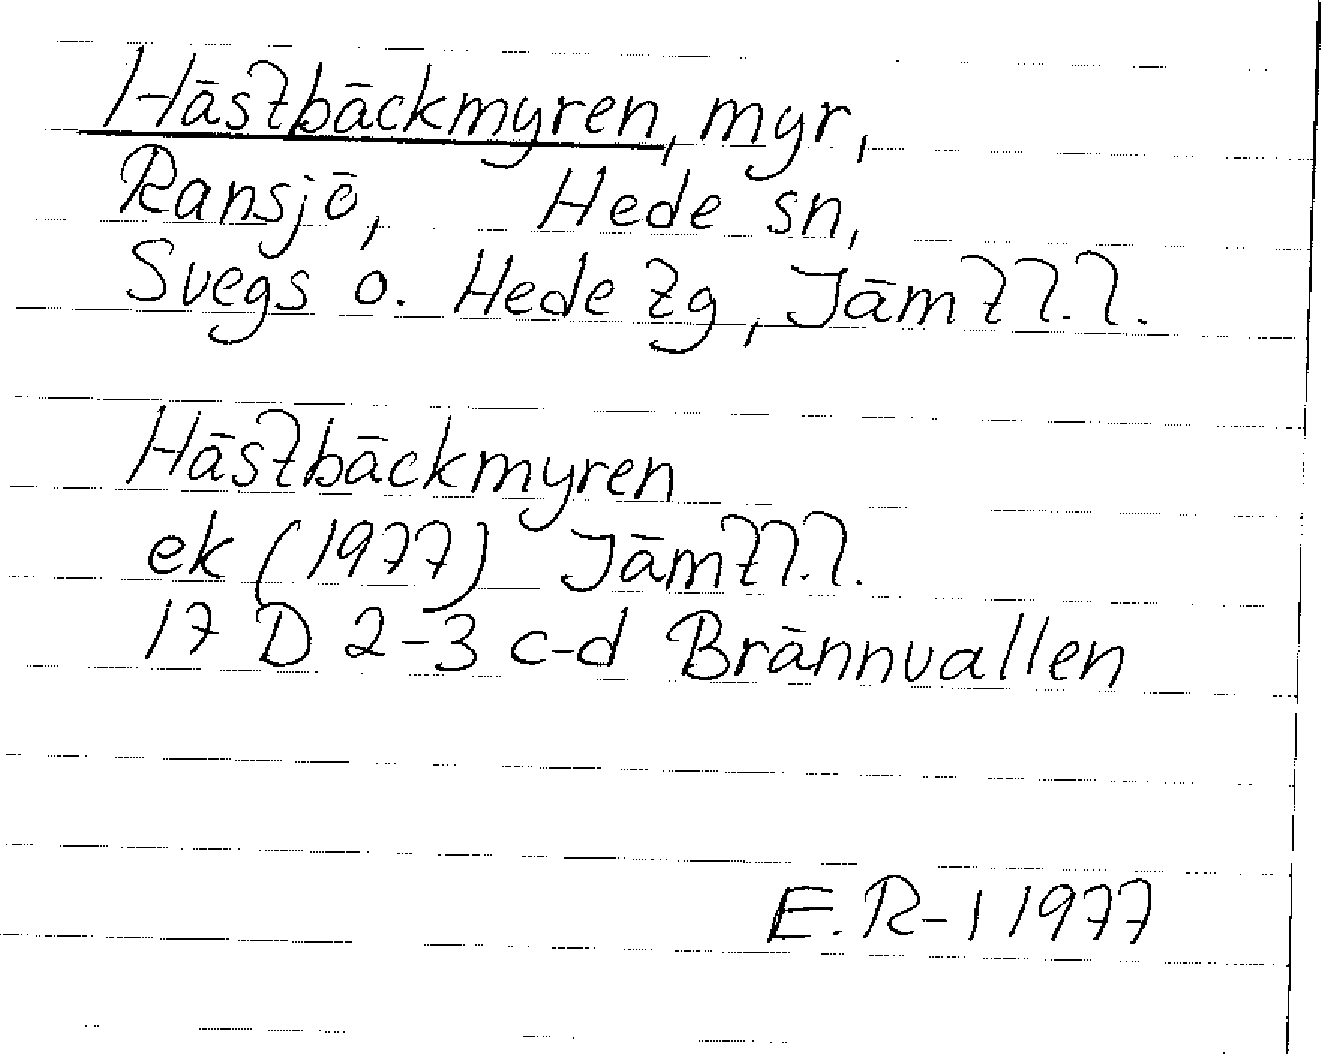 Hästbäckmyren, myr,
Ransjö, Hede sn,
Svegs o. Hede tg, Jämtl.l.
Hästbäckmyren
ek (1977) Jämtl.l.
17 D 2-3 c-d Brännvallen
E.R-l 1977